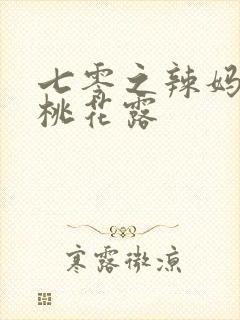 七零之辣妈
桃花露
寒露微凉